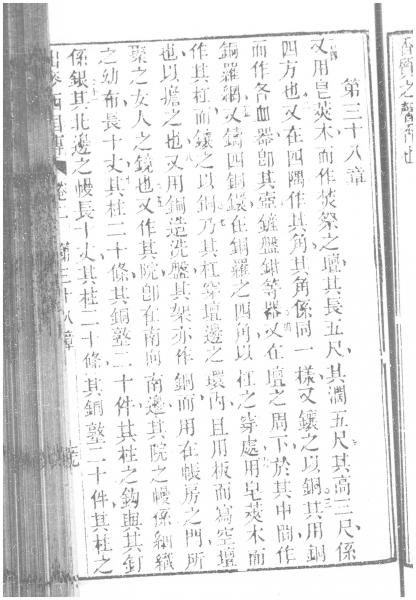 醉賓之馨香也
第三十八章
又用皂莢木而作焚祭之壇其長五尺其濶五尺其高三尺係
四方也又在四隅作其角其角係同一樣又鑲之以銅其用銅
而作各血器卽其壺鏟盤鉗等器又在壇之周下於其中間作
銅羅網又鑄四銅鐶在銅羅之四角以杠之穿處用皂莢木而
作其杠而鑲之以銅乃其杠穿壇邊之環內且用板而寫空壇
也以擔之也又用銅造洗盤其架亦作銅而用在帳房之門所
聚之女人之鏡也又作其院卽在南向南邊其院之幔係細織
之幼布長十丈其柱二十條其銅鑿二十件其柱之鈎與其釘
係銀其北邊之幔長十丈其柱二十條其銅鑿二十件其柱之
第三十八章